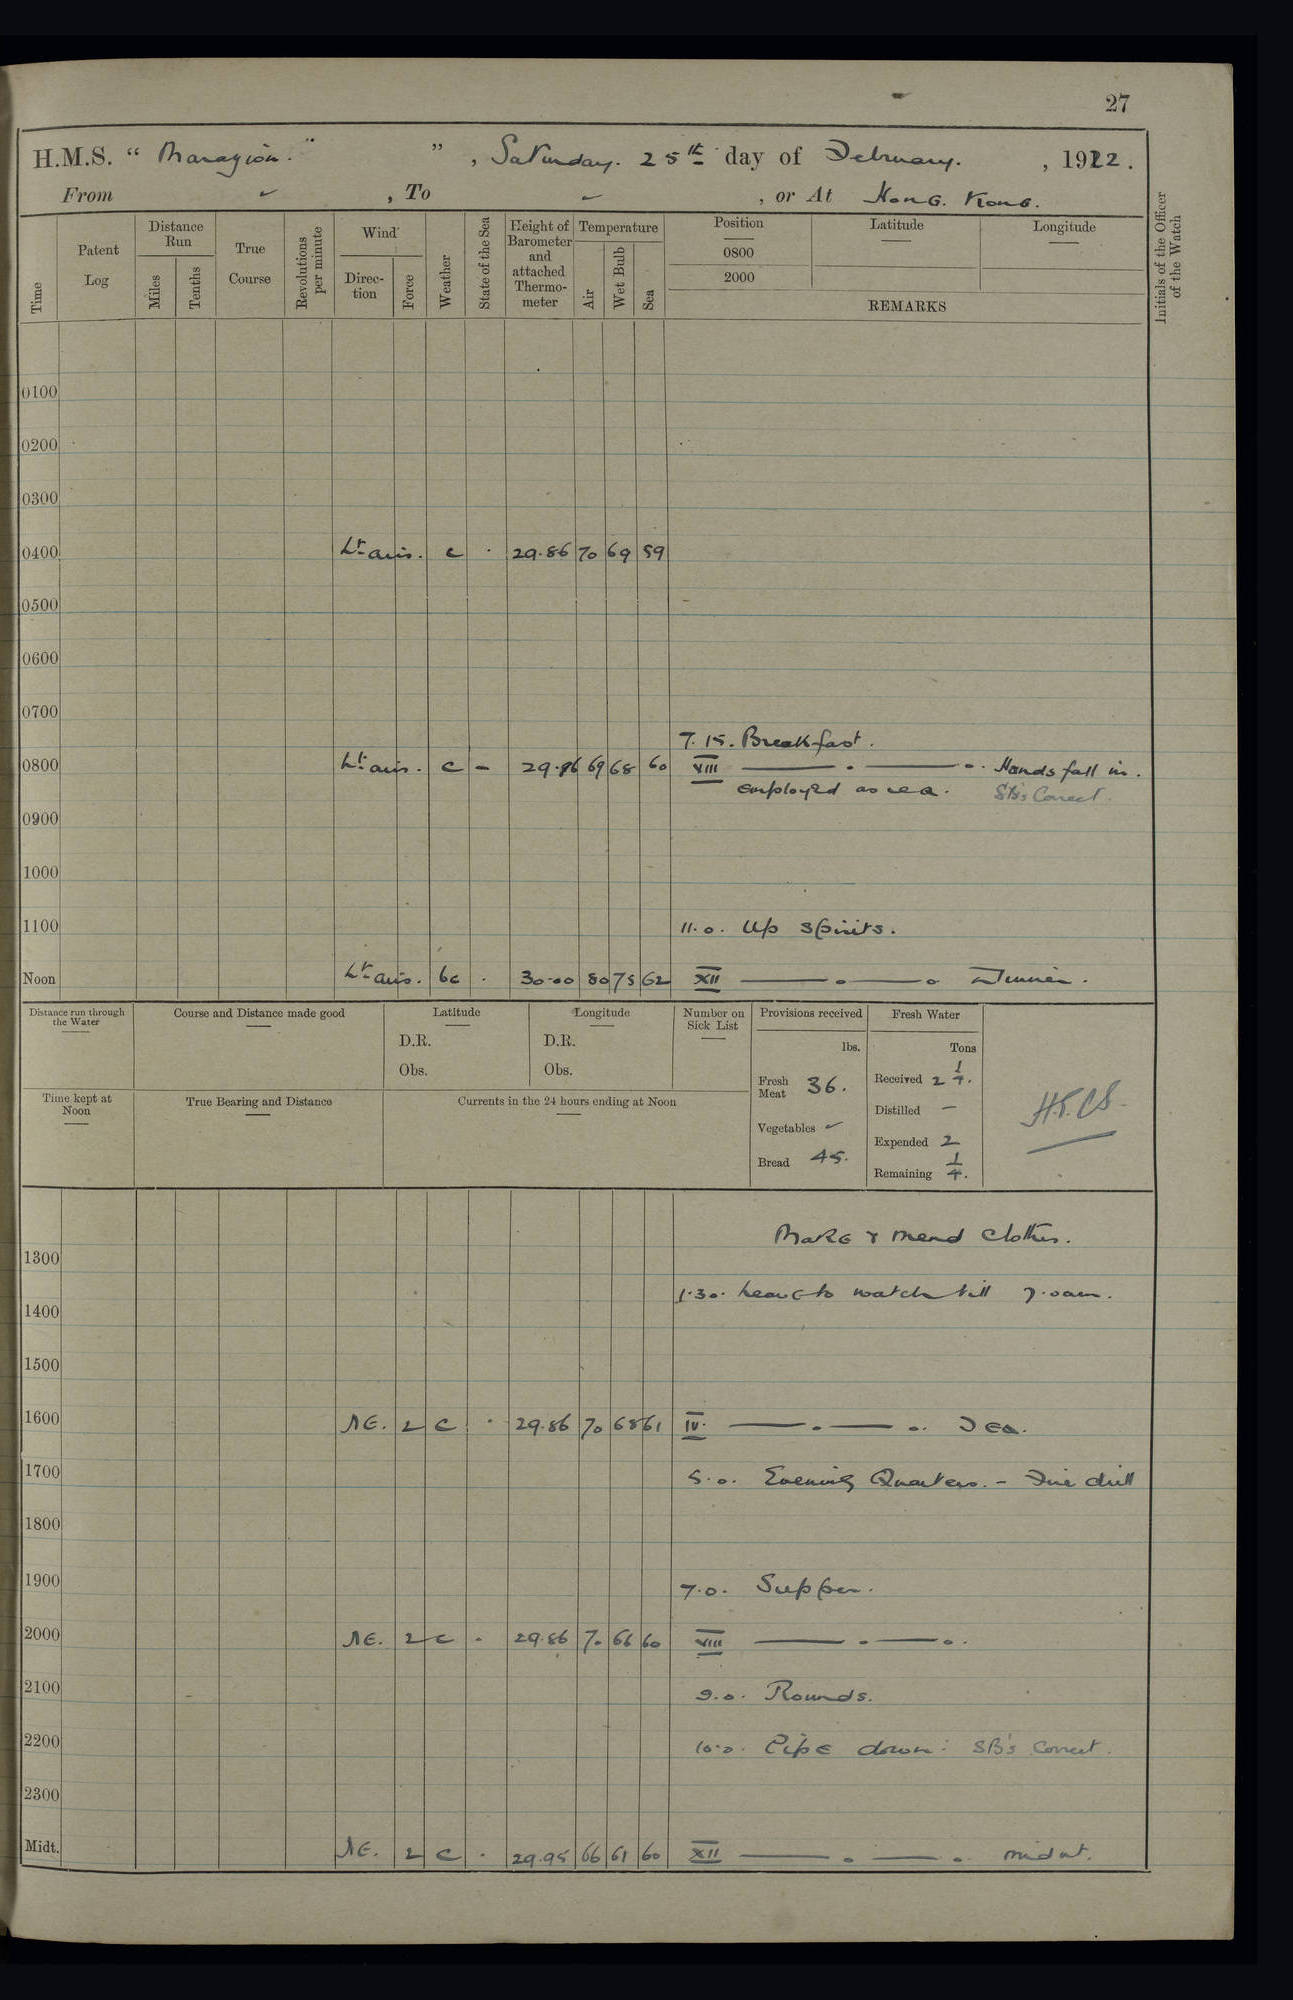 27
H.M.S. " Marazion. " , Saturday. 25th day of February. , 1922.
From ✓ , To ✓ , or At Hong. Kong.
Time
Patent Log
Distance Run
Miles
Tenths
True Course
Revolutions per minute
Wind
Direction
Force
Weather
State of the Sea
Height of Barometer and attached Thermometer
Temperature
Air
Wet Bulb
Sea
Position
0800
2000
Latitude
Longitude
REMARKS
Initials of the Officer of the Watch
0100
0200
0300
0400 Lt airs. c . 29.86 70 69 59
0500
0600
0700
7.15. Breakfast.
0800 Lt airs. c – 29.86 69 68 60 VIII Hands fall in.
employed as req. SB's Correct.
0900
1000
1100 11.0. Up spirits.
Noon Lt airs. bc . 30.00 80 75 62 XII Dinner.
Distance run through the Water
Course and Distance made good
Latitude
D.R.
Obs.
Longitude
D.R.
Obs.
Number on Sick List
Provisions received
lbs.
Fresh Meat 36.
Vegetables ✓
Bread 45.
Fresh Water
Tons
Received 2 1/4.
Distilled –
Expended 2
Remaining 1/4.
Time kept at Noon
True Bearing and Distance
Currents in the 24 hours ending at Noon
Make & Mend Clothes.
1300
1.30. Leave to watch till 7.0am.
1400
1500
1600 NE. 2 c . 29.86 70 68 61 IV. Tea.
1700 5.0. Evening Quarters. – Fire drill
1800
1900 7.0. Supper.
2000 NE. 2 c . 29.86 70 66 60 VIII
2100 9.0. Rounds.
2200 10.0. Pipe down. SB's Correct.
2300
Midt. NE. 2 c . 29.95 66 61 60 XII midnt.